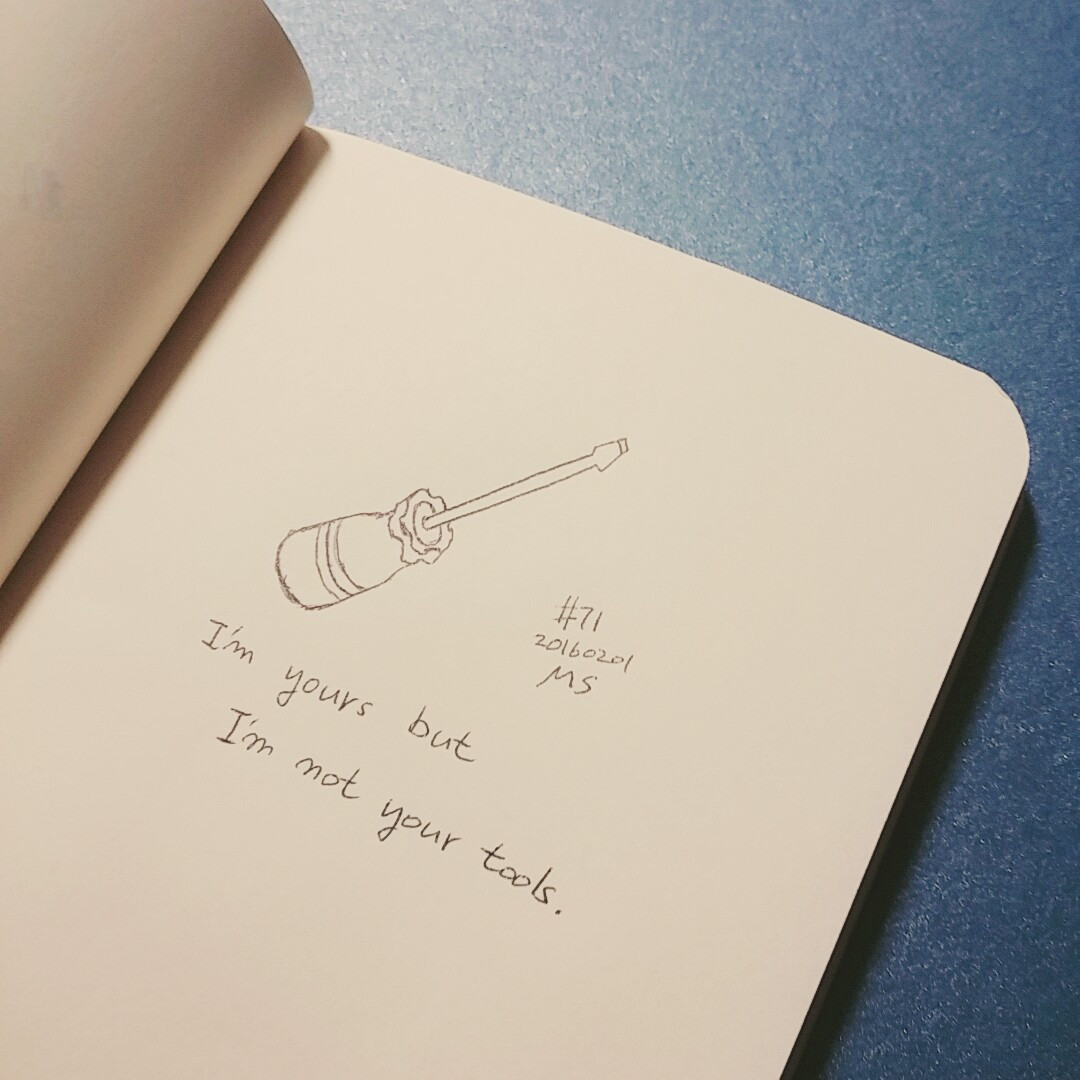 #71
20160201
MS
I'm yours but
I'm not your tools.